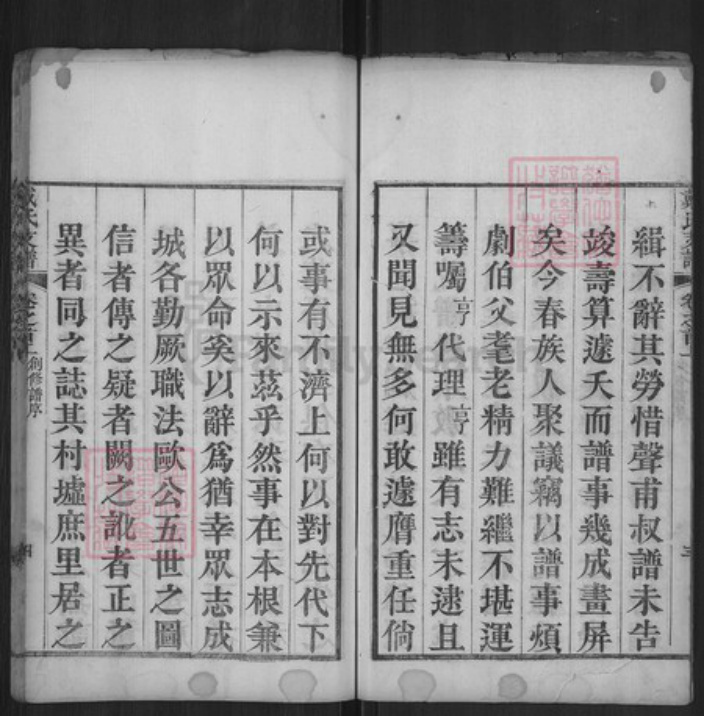 緝不辭其勞惜聲甫叔譜未告
竣壽算遽夭而譜事幾成畫屏
矣今春族人聚議竊以譜事煩
劇伯父耄老精力難繼不堪運
籌囑亨代理亨雖有志未逮且
又聞見無多何敢遽膺重任倘
或事有不濟上何以對先代下
何以示來茲乎然事在本根兼
以眾命奚以辭為猶幸眾志成
城各勤厥職法歐公五世之圖
信者傳之疑者闕之訛者正之
異者同之誌其村墟庶里居之
氏支譜
卷之首一
創修譜序
四